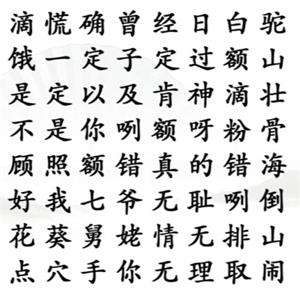 滴慌确曾经日白驼
饿一定子定过额山
是定以及肯神滴壮
不是你咧额呀粉骨
顾照额错真的错海
好我七爷无耻咧倒
花葵舅姥情无排山
点穴手你无理取闹